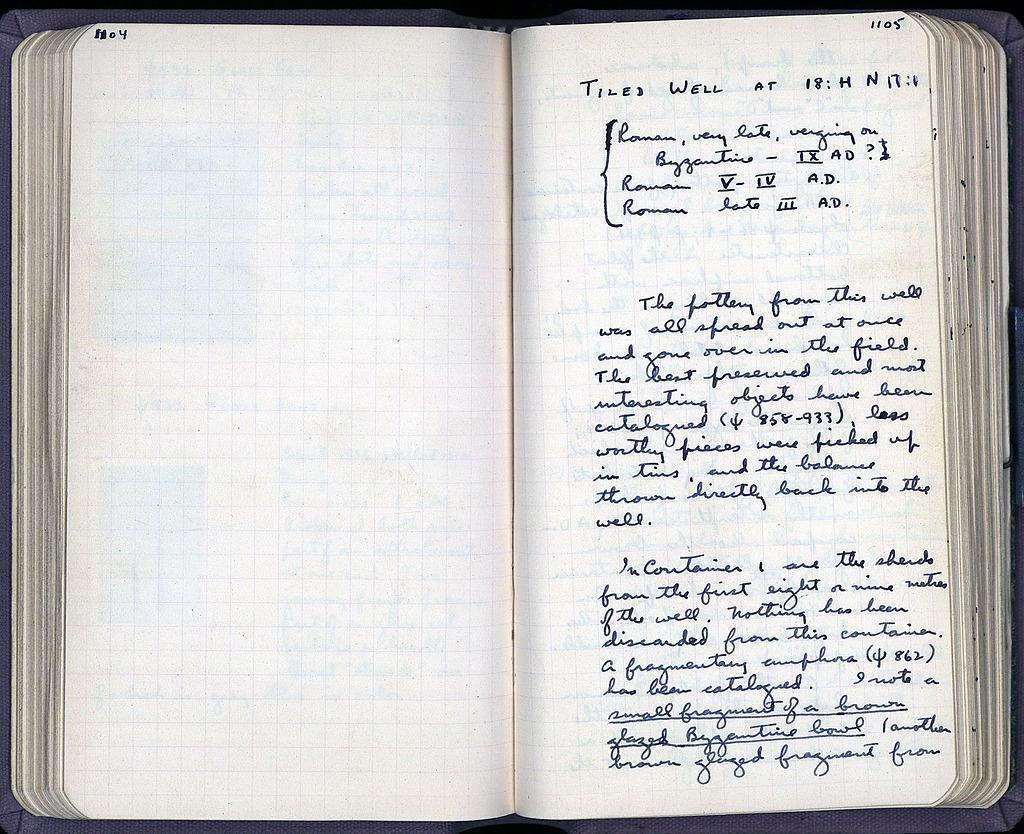 1104
1105
TILED WELL AT 18:H N 17:1
Roman, very late, verging on
Byzantine - IX AD ?
Roman V-IV A.D.
Roman late III A.D.
The pottery from this well
was all spread out at once
and gone over in the field.
The best preserved and most
interesting objects have been
catalogued (ψ 858-933), less
worthy pieces were picked up
in tins, and the balance
thrown directly back into the
well.
In Container 1 are the sherds
from the first eight or nine metres
of the well. Nothing has been
discarded from this container.
A fragmentary amphora (ψ 862)
has been catalogued. I note a
small fragment of a brown
glazed Byzantine bowl (another
brown glazed fragment from